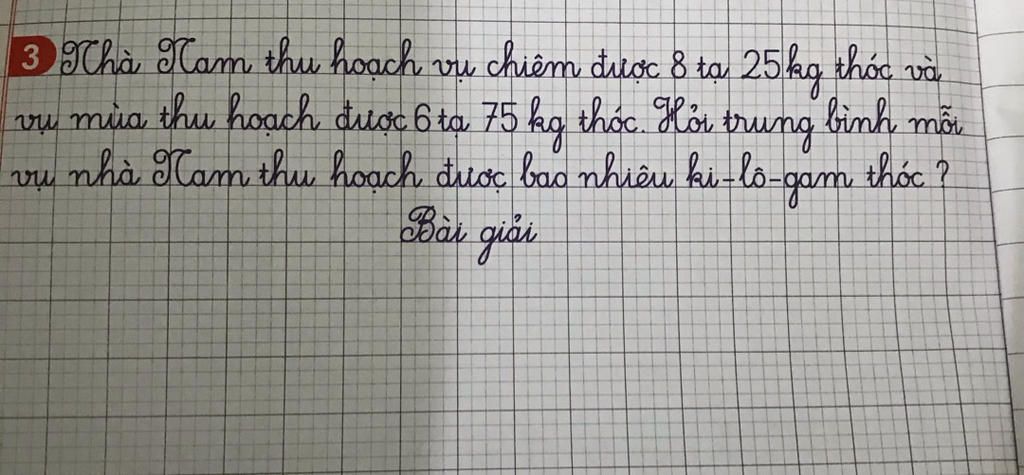 3 Nhà Nam thu hoạch vụ chiêm được 8 tạ 25kg thóc và
vụ mùa thu hoạch được 6 tạ 75 kg thóc. Hỏi trung bình mỗi
vụ nhà Nam thu hoạch được bao nhiêu ki-lô-gam thóc?
Bài giải